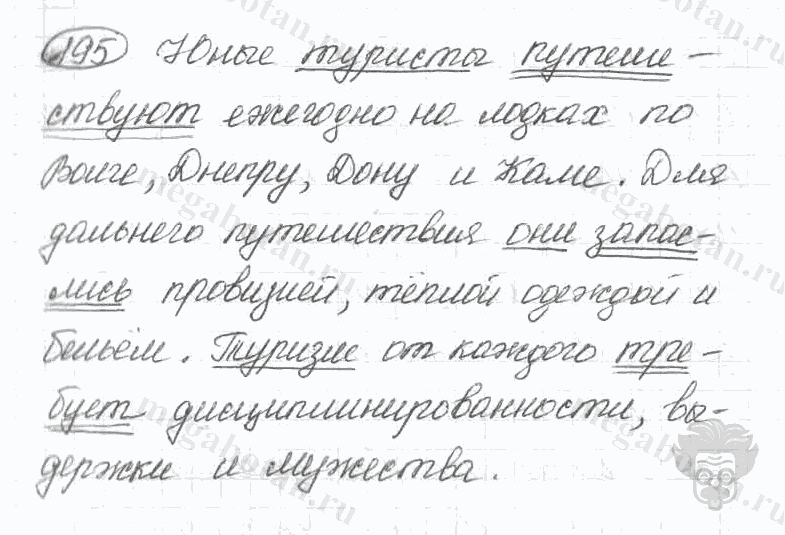 195 Юные туристы путеше-
ствуют ежегодно на лодках по
Волге, Днепру, Дону и Каме. Для
дальнего путешествия они запас-
лись провизией, тёплой одеждой и
бельём. Туризм от каждого тре-
бует дисциплинированности, вы-
держки и мужества.
megabotan.ru